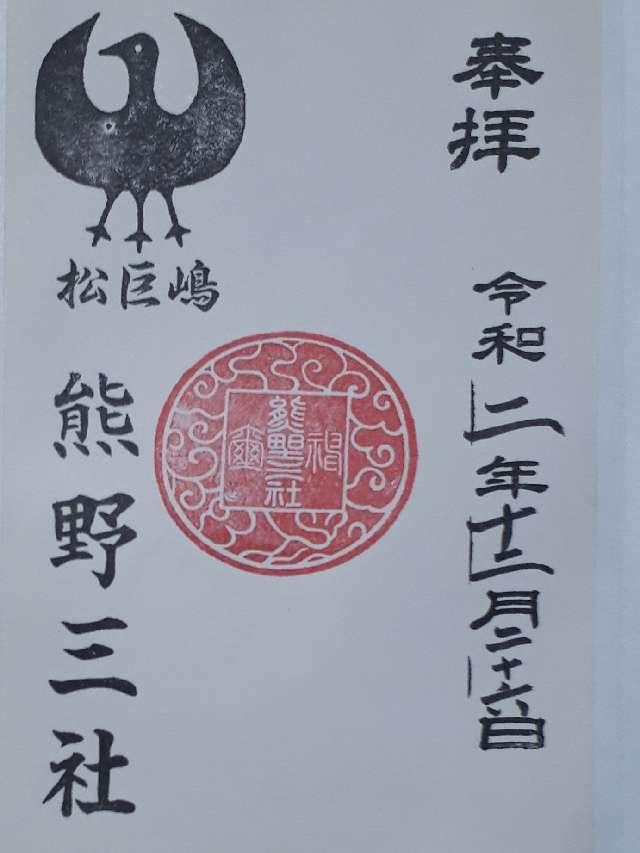 奉拝
令和二年十二月二十六日
熊野三社
神璽
松巨嶋
熊野三社